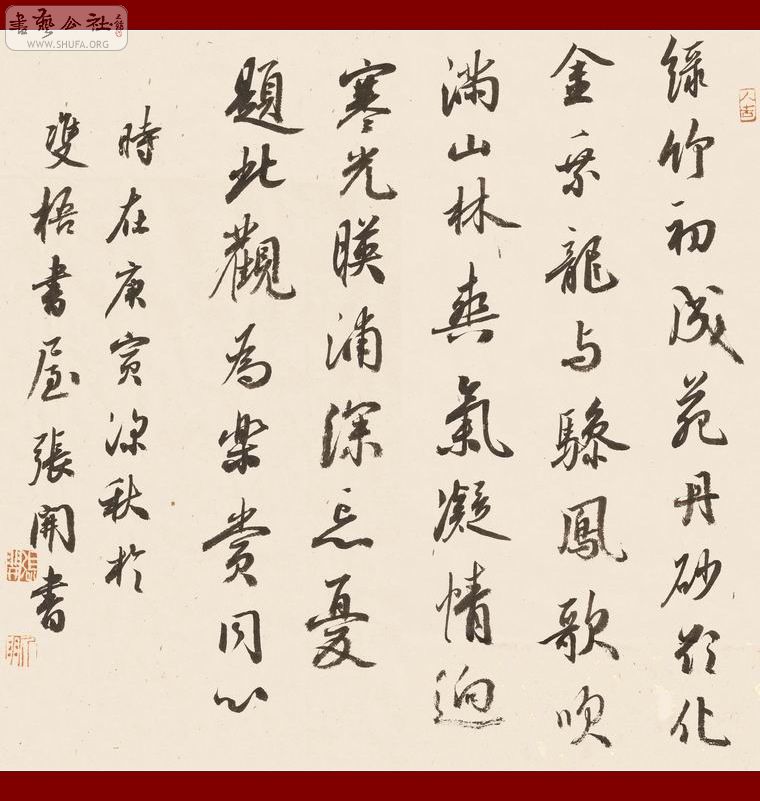 書藝公社
WWW.SHUFA.ORG
綠竹初成苑丹砂欲化
金乘龍与驂鳳歌吹
滿山林爽氣凝情迥
寒光暎浦深忘憂
題此觀為樂賞同心
時在庚寅深秋於
雙梧書屋張開書